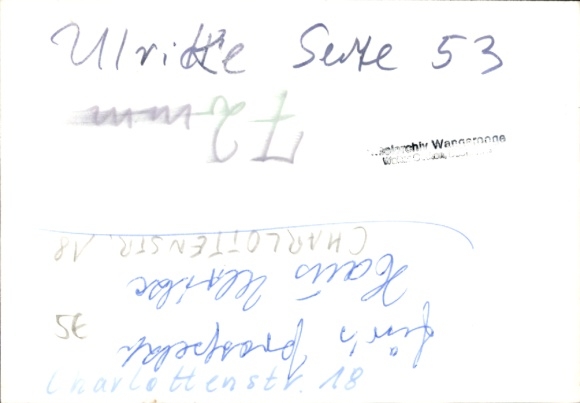 Ulrike Seite 53
72 mm
Inselarchiv Wangerooge
CHARLOTTENSTR. 18
Haus Ulrike
für's Prospekt
Charlottenstr. 18